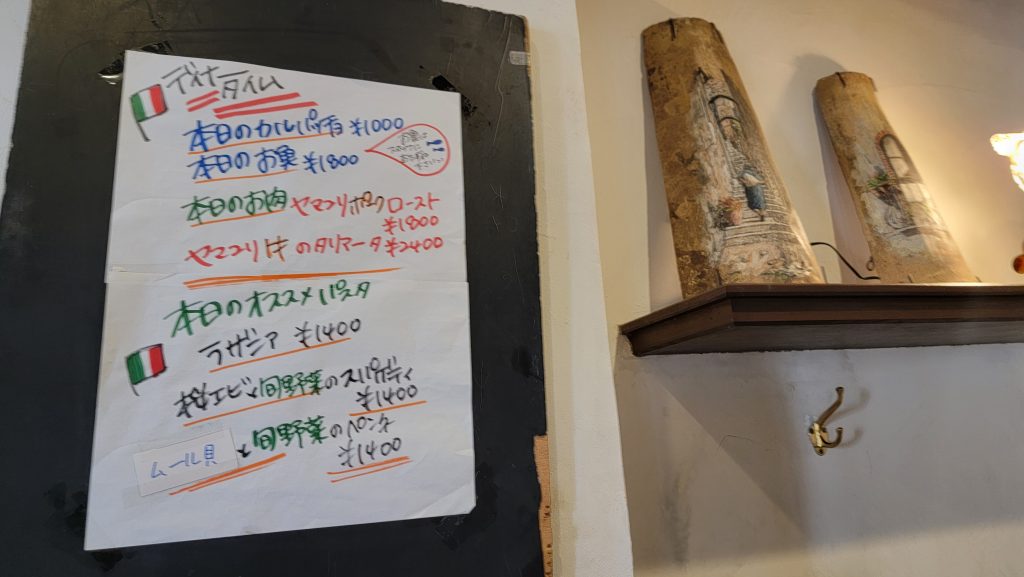 ディナータイム
本日のカルパッチョ ¥1000
本日のお魚 ¥1800
お魚は
スタッフに
お尋ね
下さい
本日のお肉 ヤマコリポークロースト
¥1800
ヤマコリ牛のタリアータ ¥2400
本日のオススメパスタ
ラザニア ¥1400
桜エビと旬野菜のスパゲティ
¥1400
ムール貝と旬野菜のペンネ
¥1400